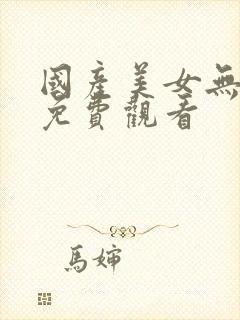 國產美女無
免費觀看
馬婶